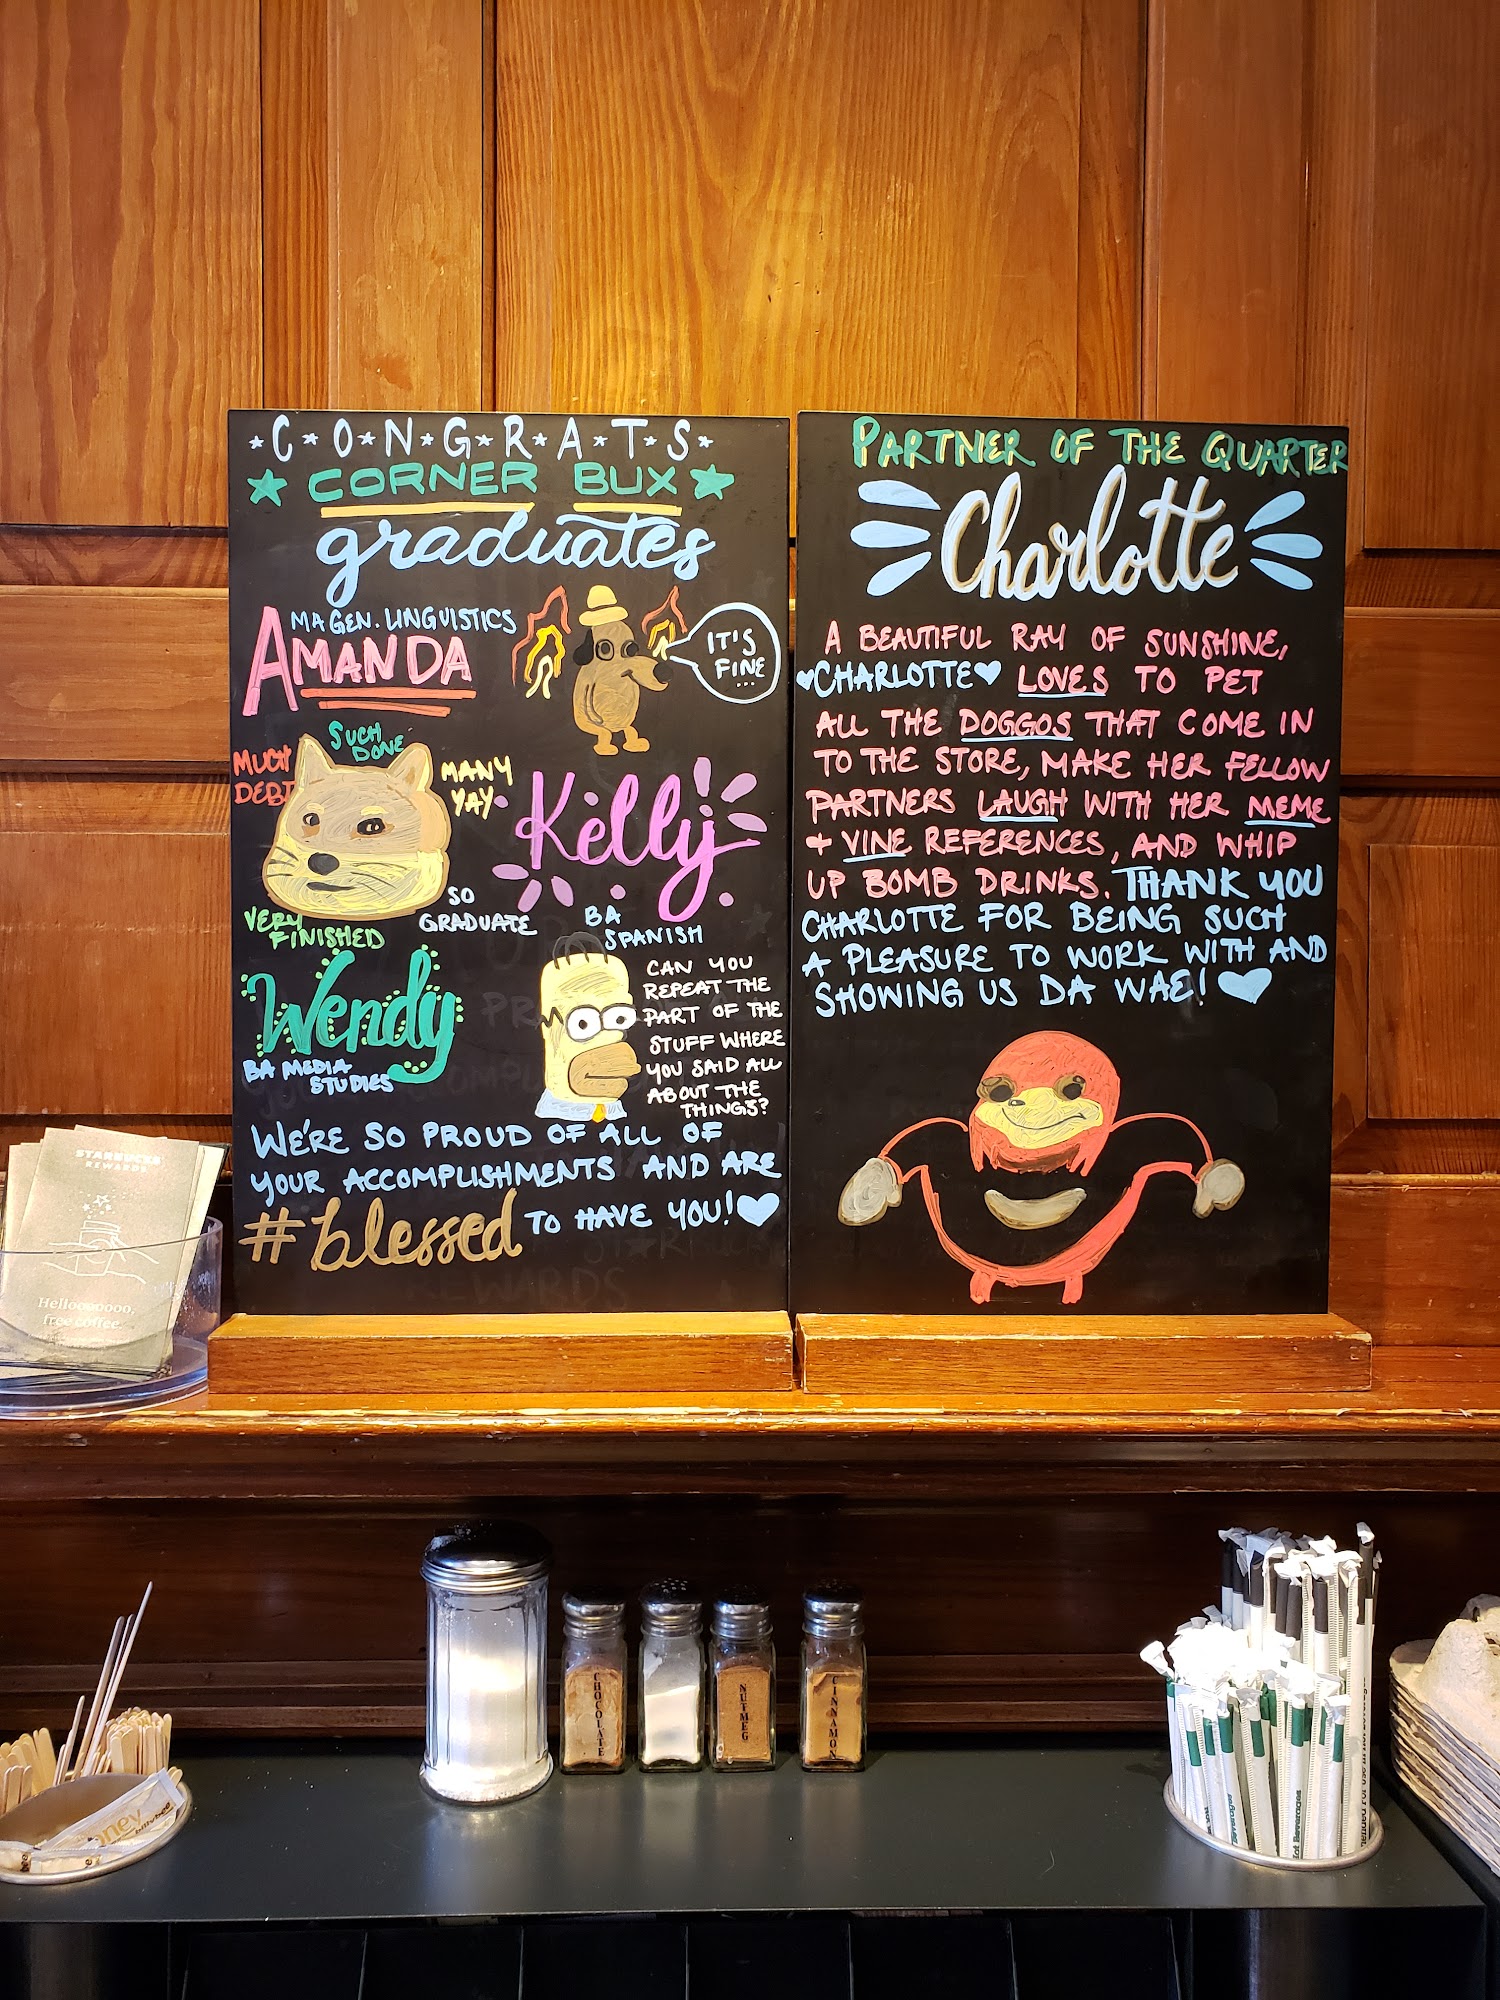 CONGRATS
CORNER BUX
graduates
MA GEN. LINGUISTICS
AMANDA
IT'S
FINE
...
SUCH
DONE
MUCH
DEBT
MANY
YAY
SO
GRADUATE
VERY
FINISHED
Kelly
BA
SPANISH
Wendy
BA MEDIA
STUDIES
CAN YOU
REPEAT THE
PART OF THE
STUFF WHERE
YOU SAID ALL
ABOUT THE
THINGS?
WE'RE SO PROUD OF ALL OF
YOUR ACCOMPLISHMENTS AND ARE
#blessed TO HAVE YOU!
PARTNER OF THE QUARTER
Charlotte
A BEAUTIFUL RAY OF SUNSHINE,
CHARLOTTE LOVES TO PET
ALL THE DOGGOS THAT COME IN
TO THE STORE, MAKE HER FELLOW
PARTNERS LAUGH WITH HER MEME
+ VINE REFERENCES, AND WHIP
UP BOMB DRINKS. THANK YOU
CHARLOTTE FOR BEING SUCH
A PLEASURE TO WORK WITH AND
SHOWING US DA WAE!
STARBUCKS
REWARDS
Hellooooooo,
free coffee.
CHOCOLATE
NUTMEG
CINNAMON